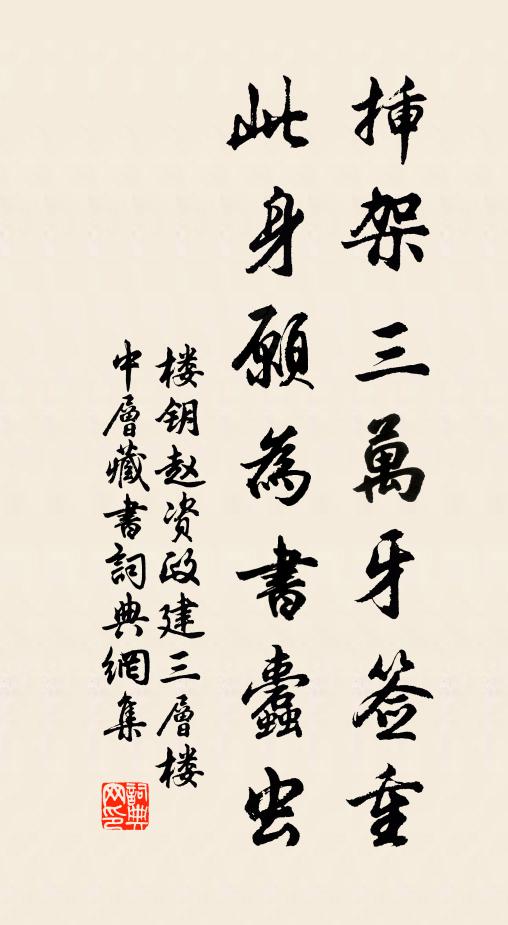 挿架三萬牙签重
此身願為書蠹虫
楼钥赵资政建三層楼
中層藏書詞典網集
詞典
网印